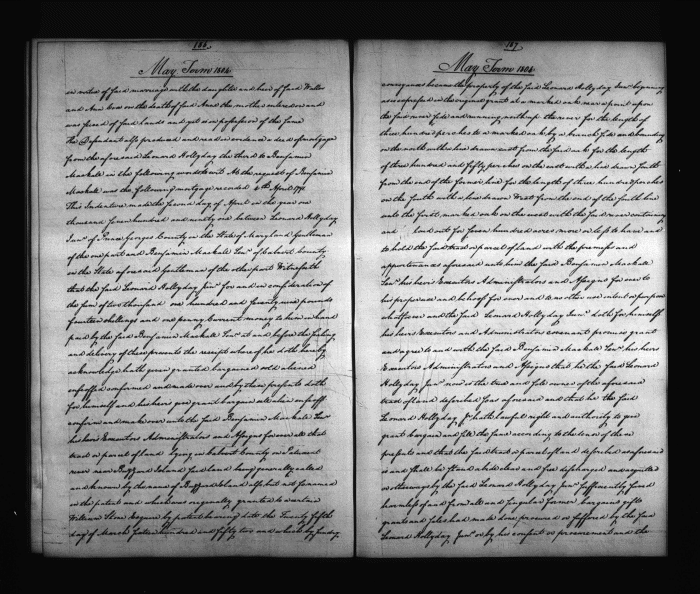 166
May Term 1804
in virtue of said marriage with the daughter and heir of said Walter
and Ann was on the death of said Ann the mother entered on and
was seized of said lands and yet is in possession of the same
The Defendant also produced and read in evidence a deed of mortgage
from the aforesaid Leonard Hollyday the third to Benjamin
Mackall in the following words to wit At the request of Benjamin
Mackall was the following mortgage recorded 4th April 1791
This Indenture made the second day of April in the year one
thousand seven hundred and ninety one between Leonard Hollyday
Junr of Prince Georges County in the State of Maryland Gentleman
of the one part and Benjamin Mackall Senr of Calvert County
in the State aforesaid Gentleman of the other part Witnesseth
that the said Leonard Hollyday Junr for and in consideration of
the sum of two thousand one hundred and seventy nine pounds
fourteen shillings and one penny Current money to him in hand
paid by the said Benjamin Mackall Senr at and before the sealing
and delivery of these presents the receipt whereof he doth hereby
acknowledge hath given granted bargained sold aliened
enfeoffed confirmed and made over and by these presents doth
for himself and his heirs give grant bargain sell alien enfeoff
confirm and make over unto the said Benjamin Mackall Senr
his heirs Executors Administrators and Assigns forever all that
tract or parcel of land lying in Calvert County in Patuxent
river near Buzzard Island said land being generally called
and known by the name of Buzzard Island also but not so named
in the patent and which was originally granted to a certain
William Stone Esquire by patent bearing date the Twenty fifth
day of March Sixteen hundred and fifty two and which by sundry
167
May Term 1804
conveyances became the property of the said Leonard Hollyday Junr beginning
as is expressed in the original grant at a marked oak near a point upon
the said river side and running north up the river for the length of
three hundred perches to a marked oak by a branch side and bounding
on the north with a line drawn east from the said oak for the length
of three hundred and fifty perches on the east with a line drawn South
from the end of the former line for the length of three hundred perches
on the South with a line drawn West from the end of the South line
unto the first marked oak on the west with the said river containing
and laid out for Seven hundred acres more or less to have and
to hold the said tract or parcel of land with the premises and
appurtenances aforesaid unto him the said Benjamin Mackall
Senr his heirs Executors Administrators and Assigns for ever to
his proper use and behoof for ever and to no other use intent or purpose
whatsoever and the said Leonard Hollyday Junr doth for himself
his heirs Executors and Administrators covenant promise grant
and agree to and with the said Benjamin Mackall Senr his heirs
Executors Administrators and Assigns that he the said Leonard
Hollyday Junr now is the true and sole owner of the aforesaid
tract of land described as aforesaid and that he the said
Leonard Hollyday Jr hath lawful right and authority to give
grant bargain and sell the same according to the tenor of these
presents and that the said tract or parcel of land described as aforesaid
is and shall be and abide clear and free discharged and acquitted
or otherways by the said Leonard Hollyday Junr sufficiently saved
harmless of and from all and singular former bargains gifts
grants and sales had made done procured or suffered by the said
Leonard Hollyday Junr or by his consent or procurement and the